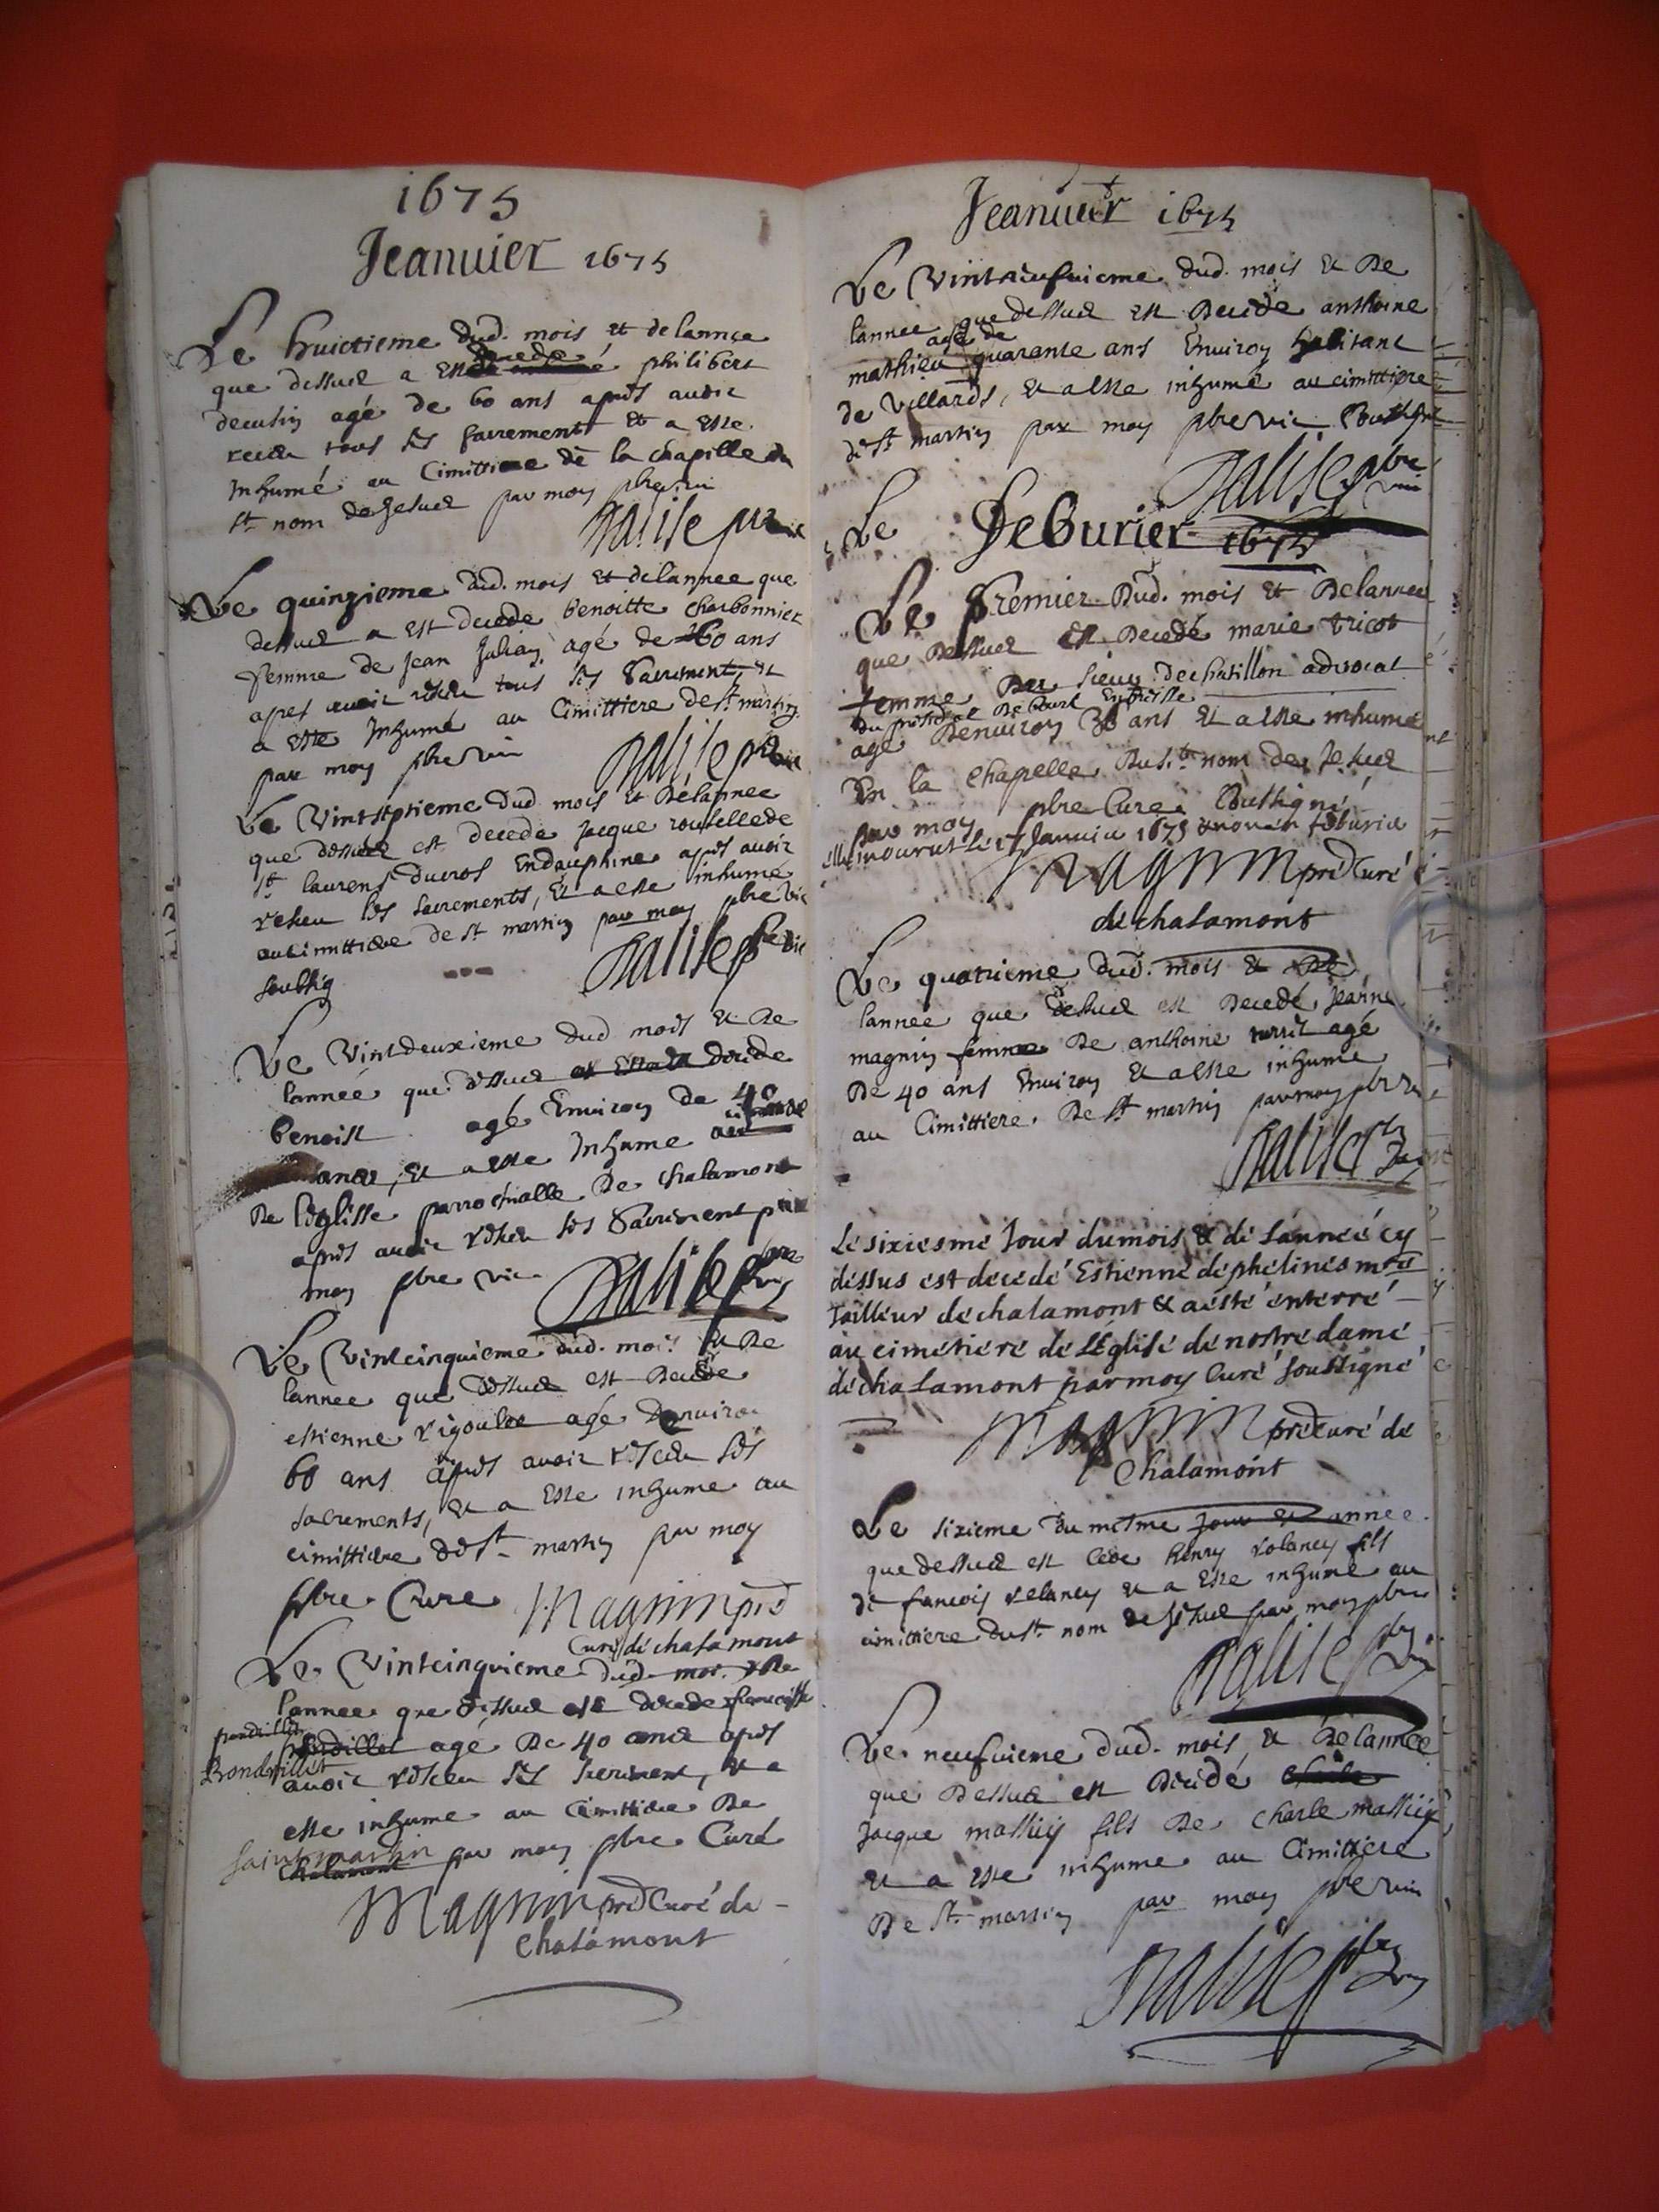 1675
Jeanuier 1675
Le huictieme dud. mois et de lannee
que dessus a este decede philibert
decusin agé de 60 ans apres auoir
receu tous ses sacrements et a este
Inhumé au Cimittiere de la chapelle du
st nom de Jesus par moy pbre vic
pbre
Le quinzieme dud. mois et de lannee que
dessus a est decede benoitte charbonnier
femme de Jean Julian agé de 60 ans
apres auoir receu tous ses Sacrements et
a este Inhumé au Cimittiere de st martin
par moy pbre vic
Le Vintseptieme dud mois et de lannee
que dessus est decede Jacque de
st laurens ducros En dauphine apres auoir
receu ses sacrements, et a este inhumé
au cimittiere de st martin par moy pbre vic
soubsig
Le Vintdeuxieme dud mois et de
lannée que dessus decede
benoist agé Enuiron de 40
ans, et a este Inhume au cimittiere
de leglisse parrochialle de chalamont
apres auoir receu ses Sacrement par
moy pbre vic
Le Vintcinquieme dud. mois et de
lannee que dessus est decede
estienne rigoulet agé denuiron
60 ans apres auoir receu ses
sacrements, et a este inhume au
cimittiere de st martin par moy
pbre Cure Magnin pre
Curé de chalamont
Le Vintcinquieme dud mois et de
lannee que dessus est decede francoise
agé de 40 ans apres
Bondrillet
auoir receu ses sacrement, et a
este inhume au cimittiere de
saint martin
chalamont par moy pbre Curé
Magnin pre Curé de
chalamont
Jeanuier 1675
Le Vintneufuieme dud. mois et de
lannee que dessus est decede anthoine
agé de
mathieu quarante ans Enuiron habitant
de Villards, et a este inhumé au cimittiere
de st martin par moy pbre vic soubsigné
pbre vic
Le Feburier 1675
Le premier dud. mois et de lannee
que dessus est decedé marie tricot
femme du sieur de chatillon aduocat
du presidial de bourg En bresse
agé denuiron 30 ans et a este inhumé
En la chapelle du st nom de Jesus
par moy pbre Cure soubsigné
elle mourut le 17 Januier 1675 & non en feburier
Magnin pre Curé
de chalamont
Le quatrieme dud. mois et de
lannee que dessus est decedé Jeanne
magnin femme de anthoine agé
de 40 ans Enuiron et a este inhume
au Cimittiere de st martin par moy pbre vic
Le sixiesme Jour du mois & de l'année cy
dessus est decedé Estienne dephelines mre
Tailleur de chalamont & a esté enterré
au cimetiere de l'Eglise de nostre dame
de chalamont par moy Curé soubsigné
Magnin pre Curé de
Chalamont
Le sixieme du mesme Jour et annee
que dessus est cede henry rolancy fils
de francois relancy et a este inhume au
cimittiere du st nom de Jesus par moy pbre
Le neufuieme dud. mois, et de lannee
que dessus est decidé
Jacque mathieu fils de charle mathieu
et a este inhume au Cimittiere
de st martin par moy pbre vic